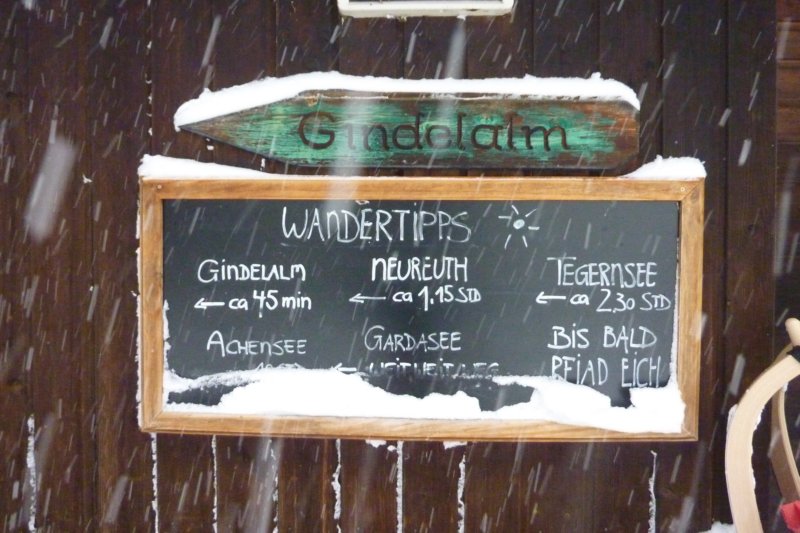 Gindelalm
WANDERTIPPS
GINDELALM NEUREUTH TEGERNSEE
← ca 45 min ← ca 1.15 STD ← ca 2.30 STD
ACHENSEE GARDASEE BIS BALD
← WEIT WEIT WEG PFIAD EICH